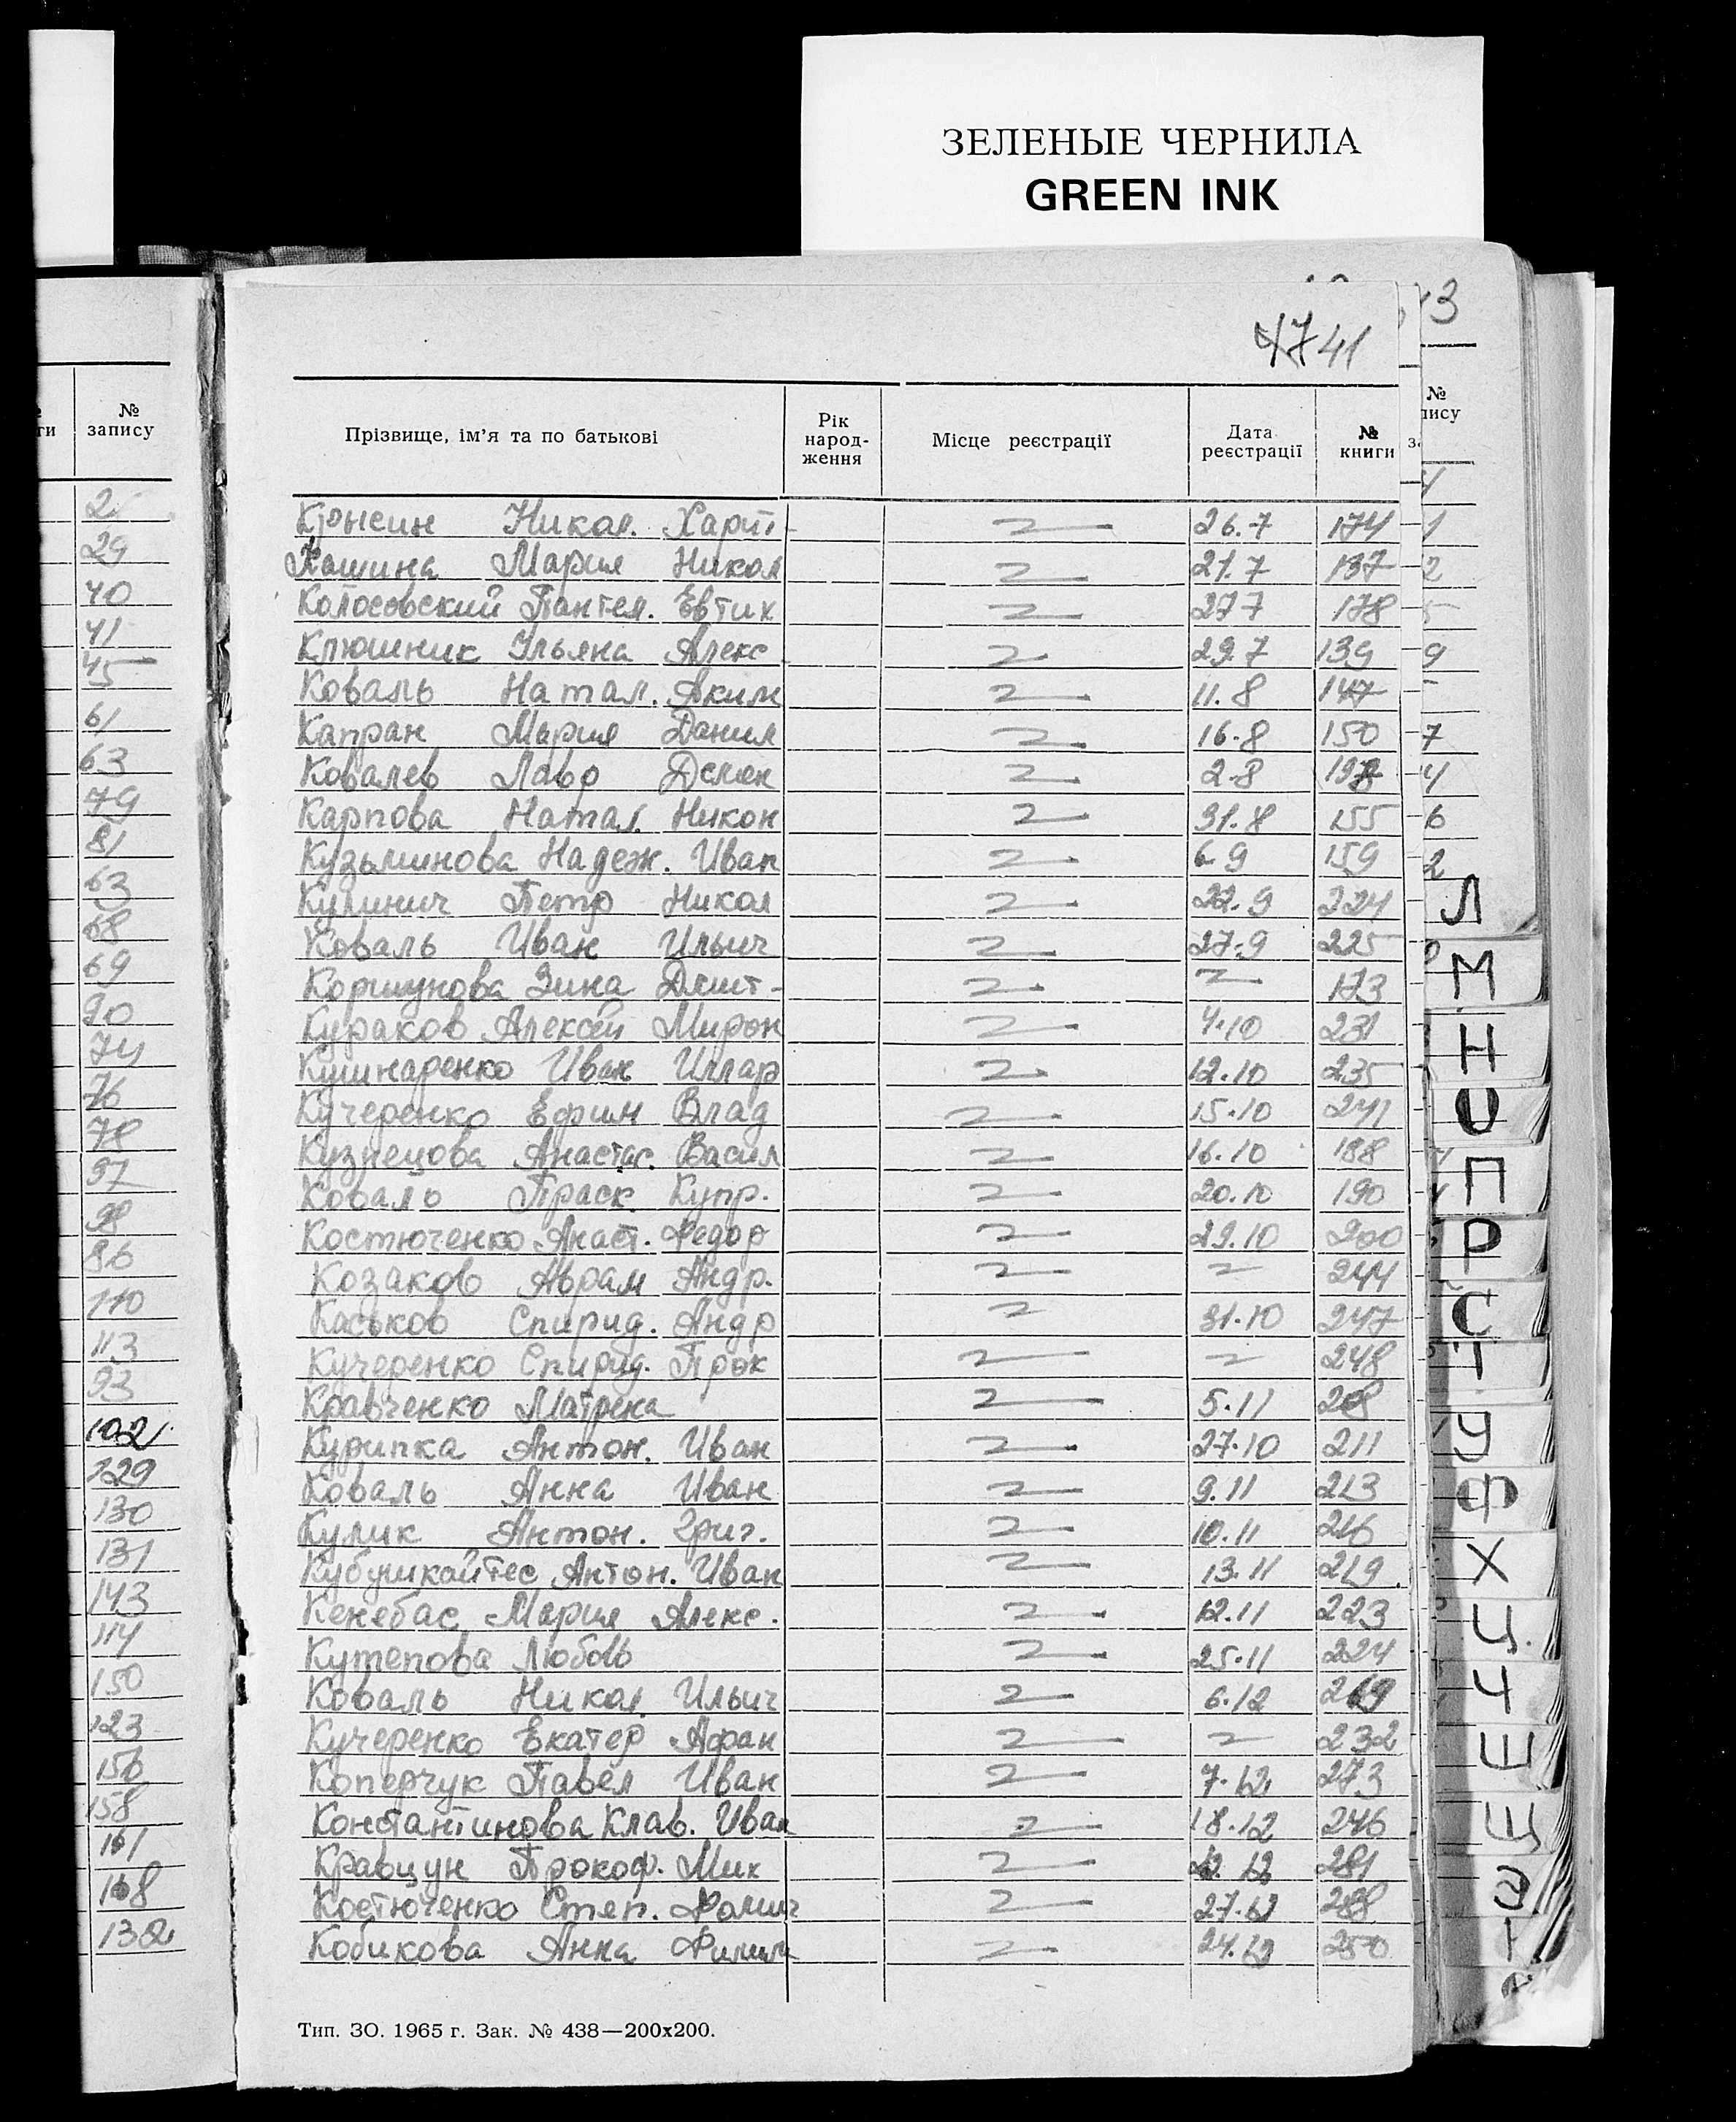 ЗЕЛЕНЫЕ ЧЕРНИЛА
GREEN INK
43
47 41
№ запису
Прізвище, ім'я та по батькові Рік народження Місце реєстрації Дата реєстрації № книги
2
29
40
41
45
61
63
79
81
63
68
69
90
74
76
78
97
98
86
110
113
93
102
129
130
131
143
114
150
123
156
158
161
168
132
Никол. Харит 26.7 174
Кашина Мария Никол 21.7 137
Колосовский Пантел. Евтих 27.7 178
Клюшник Ульяна Алекс 29.7 139
Коваль Натал. Аким 11.8 147
Капран Мария Данил 16.8 150
Ковалев Лавр Демен 2.8
Карпова Натал. Никон 31.8 155
Кузьминова Надеж. Иван 6.9 159
Кулинич Петр Никол 22.9 224
Коваль Иван Ильич 27.9 225
Коршунова Зина Дмит- 173
Кураков Алексей Мирон 4.10 231
Кушнаренко Иван Иллар 12.10 235
Кучеренко Ефим Влад 15.10 241
Кузнецова Анастас. Васил 16.10 188
Коваль Праск. Купр. 20.10 190
Костюченко Анаст. Федор 29.10 200
Козаков Аврам Андр. 244
Каськов Спирид. Андр 31.10 247
Кучеренко Спирид. Прок 248
Кравченко Матрена 5.11 208
Курипка Антон. Иван 27.10 211
Коваль Анна Иван 9.11 213
Кулик Антон. Григ. 10.11 216
Кубушкайтес Антон. Иван 13.11 219
Кенебас Мария Алекс. 12.11 223
Кутепова Любовь 25.11 224
Коваль Никол. Ильич 6.12 269
Кучеренко Екатер Афан 232
Коперчук Павел Иван 7.12 273
Константинова Клав. Иван 18.12 246
Кравцун Прокоф. Мих 12 281
Костюченко Степ. Фомич 27.12 288
Кобикова Анна Филип 24.12 250
Тип. ЗО. 1965 г. Зак. № 438—200x200.
Л
М
Н
О
П
Р
С
Т
У
Ф
Х
Ц
Ч
Ш
Щ
Э